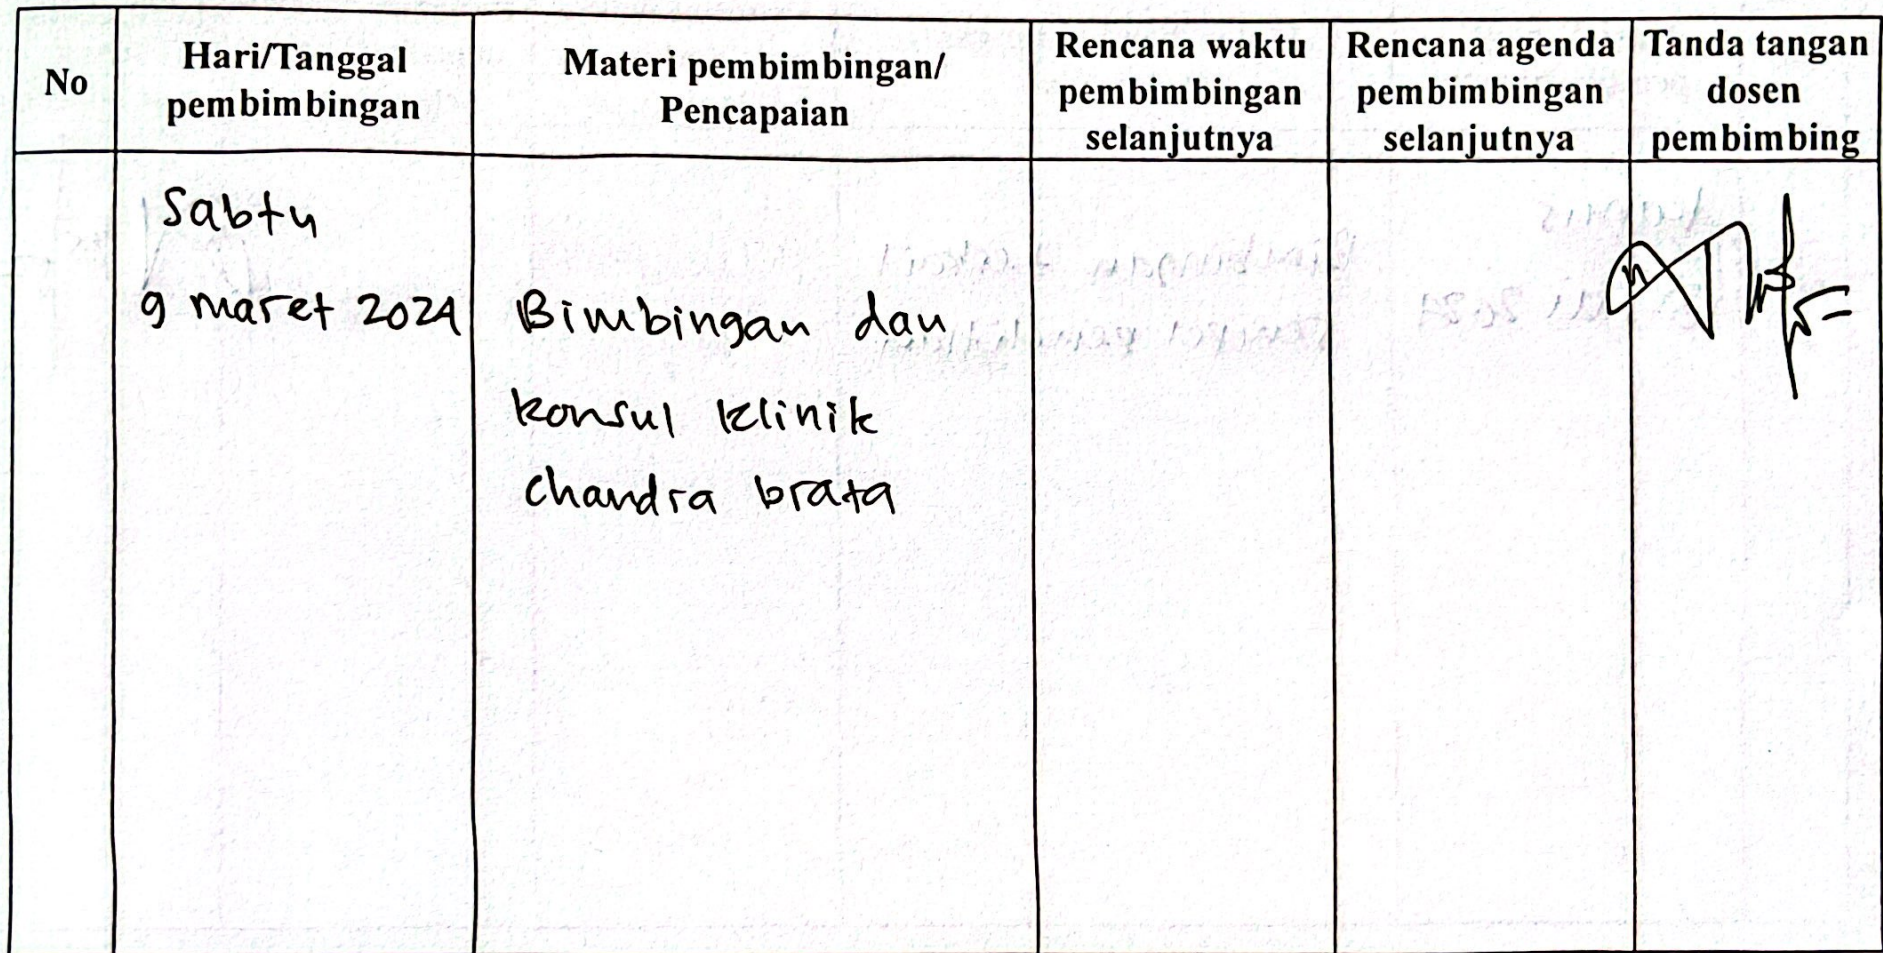 No
Hari/Tanggal
pembimbingan
Materi pembimbingan/
Pencapaian
Rencana waktu
pembimbingan
selanjutnya
Rencana agenda
pembimbingan
selanjutnya
Tanda tangan
dosen
pembimbing
Sabtu
9 maret 2024
Bimbingan dan
konsul klinik
chandra brata